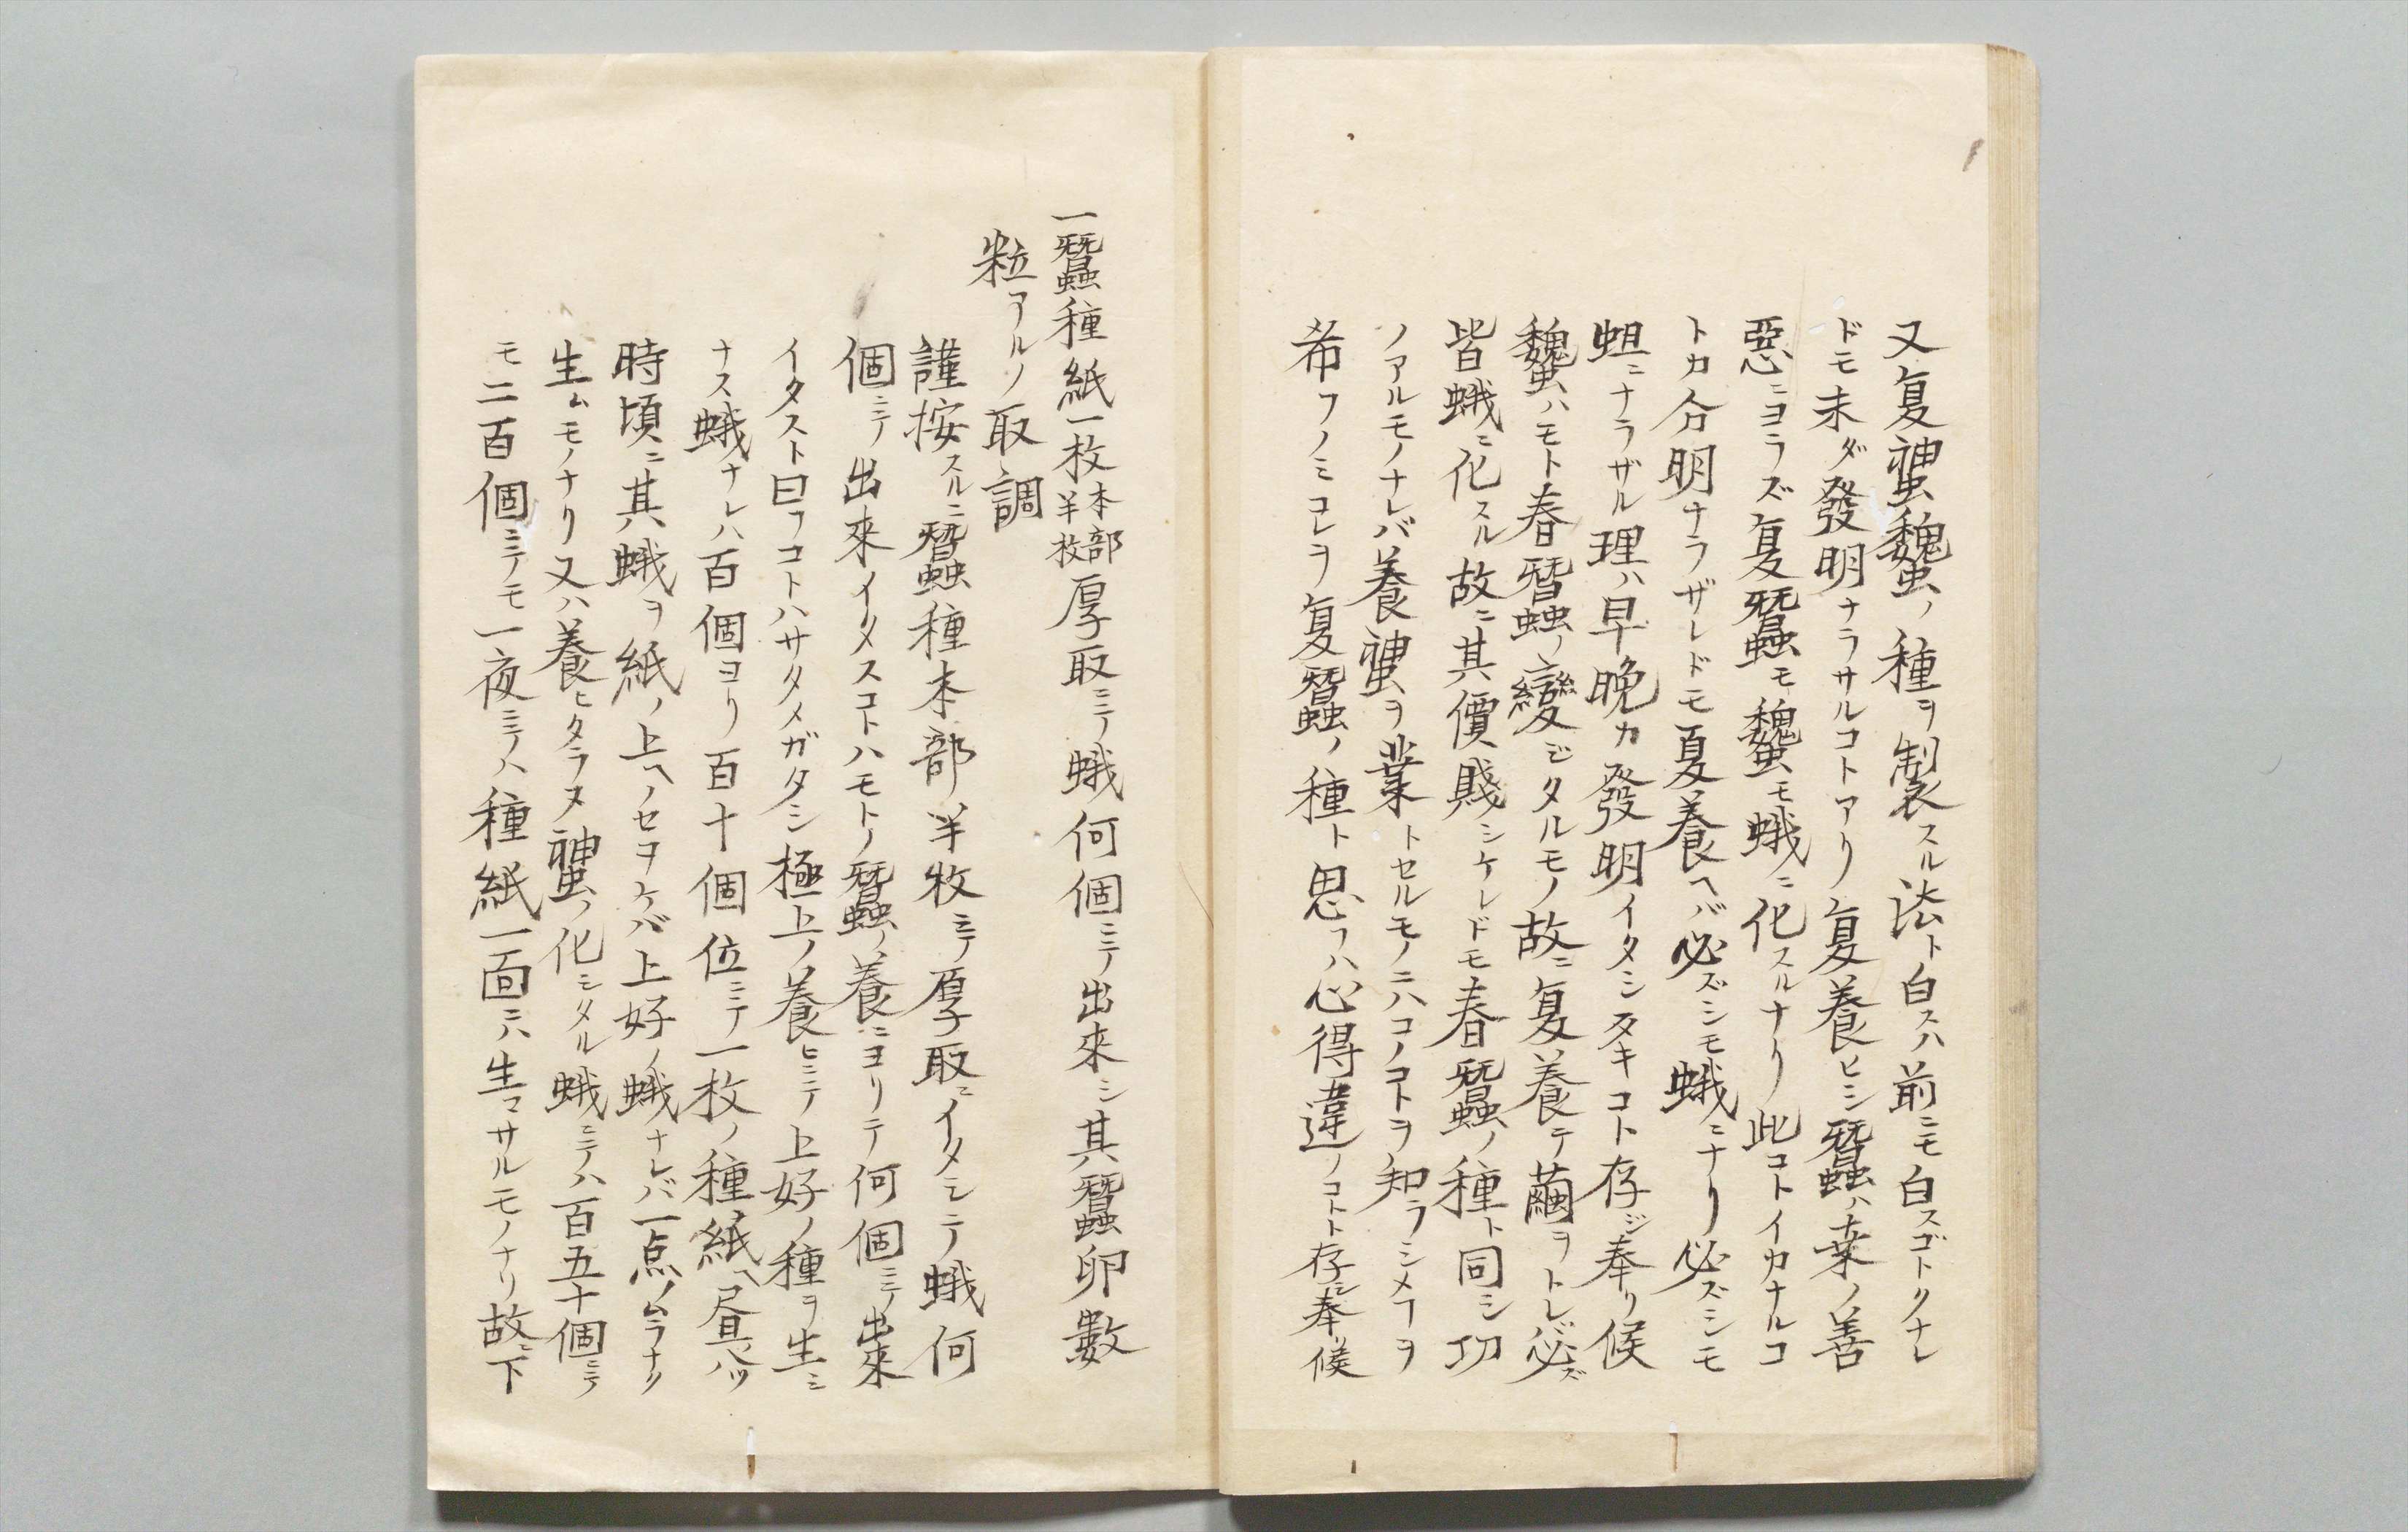 又夏𧕦䘊ノ種ヲ製スル法ト白スハ前ニモ白スゴトクナレ
ドモ未ダ發明ナラサルコトアリ夏養ヒシ蠶ハ桒ノ善
惡ニヨラズ夏蠶モ䘊モ蛾ニ化スルナリ此コトイカナルコ
トカ分明ナラザレドモ夏養ヘバ必ズシモ蛾ニナリ必ズシモ
蛆ニナラザル理ハ早晩カ發明イタシタキコト存ジ奉リ候
䘊ハモト春蠶ノ變ジタルモノ故ニ夏養テ繭ヲトレバ必ズ
皆蛾ニ化スル故ニ其價賤シケレドモ春蠶ノ種ト同シ功
ノアルモノナレバ養𧕦ヲ業トセルモノニハコノコトヲ知ラシメマヲ
希フノミコレヲ夏蠶ノ種ト思フハ心得違ノコトト存ジ奉リ候
一蠶種紙一枚本部半枚厚取ニテ蛾何個ニテ出來シ其蠶卵數
粒アルノ取調
謹按スルニ蠶種本部半枚ニテ厚取ニイタシテ蛾何
個ニテ出來イタスコトハモトノ蠶ノ養ニヨリテ何個ニテ出來
イタスト曰フコトハサタメガタシ極上ノ養ヒニテ上好ノ種ヲ生シ
ナス蛾ナレハ百個ヨリ百十個位ニテ一枚ノ種紙ヘ昼八ツ
時頃ニ其蛾ヲ紙ノ上ヘノセヲケバ上好ノ蛾ナレバ一点ノムラナク
生ムモノナリ又ハ養ヒタラヌ𧕦ノ化シタル蛾ニテハ百五十個ニテ
モ二百個ニテモ一夜ニテハ種紙一面ニハ生マサルモノナリ故ニ下